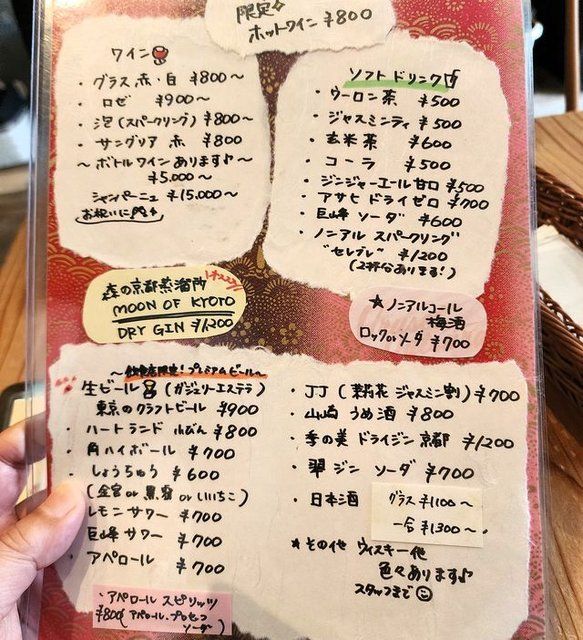 限定
ホットワイン ¥800
ワイン
・グラス 赤・白 ¥800〜
・ロゼ ¥900〜
・泡(スパークリング) ¥800〜
・サングリア 赤 ¥800
〜ボトルワインあります♪〜
¥5.000〜
シャンパーニュ ¥15.000〜
お祝いに
ソフトドリンク
・ウーロン茶 ¥500
・ジャスミンティ ¥500
・玄米茶 ¥600
・コーラ ¥500
・ジンジャーエール甘口 ¥500
・アサヒ ドライゼロ ¥700
・巨峰 ソーダ ¥600
・ノンアル スパークリング
"セレブレ" ¥1,200
(2杯分あります!)
森の京都蒸溜所
MOON OF KYOTO
DRY GIN ¥1,200
★ノンアルコール
梅酒
ロックorソーダ ¥700
〜飲食店限定!プレミアムビール〜
生ビール (ガージェリーエステラ)
東京のクラフトビール ¥900
・ハートランド 小びん ¥800
・角ハイボール ¥700
・しょうちゅう ¥600
(金宮 or 黒霧 or いいちこ)
・レモンサワー ¥700
・巨峰サワー ¥700
・アペロール ¥700
・アペロール スピリッツ
¥800(アペロール.プロセッコ
ソーダ)
・JJ (茉莉花 ジャスミン割) ¥700
・山崎 うめ酒 ¥800
・季の美 ドライジン 京都 ¥1200
・翠ジン ソーダ ¥700
・日本酒
グラス ¥1100〜
一合 ¥1300〜
★その他 ウィスキー他
色々あります♪
スタッフまで☺